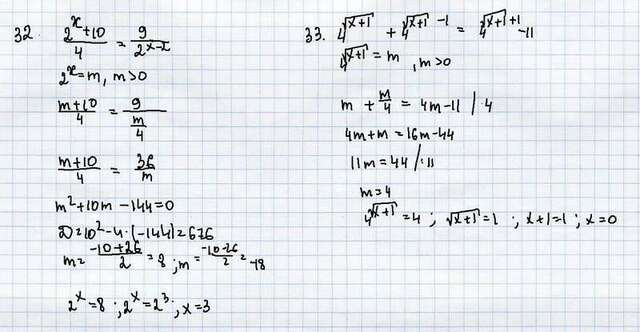 32. (2^x+10)/4 = 9/(2^(x-2))
2^x=m, m>0
(m+10)/4 = 9/(m/4)
(m+10)/4 = 36/m
m²+10m-144=0
D=10²-4·(-144)=676
m=(-10+26)/2=8; m=(-10-26)/2=-18
2^x=8; 2^x=2^3; x=3
33. 4^√(x+1) + 4^(√(x+1)-1) = 4^(√(x+1)+1) -11
4^√(x+1) = m, m>0
m + m/4 = 4m-11 /·4
4m+m=16m-44
11m=44 /:11
m=4
4^√(x+1)=4; √(x+1)=1; x+1=1; x=0